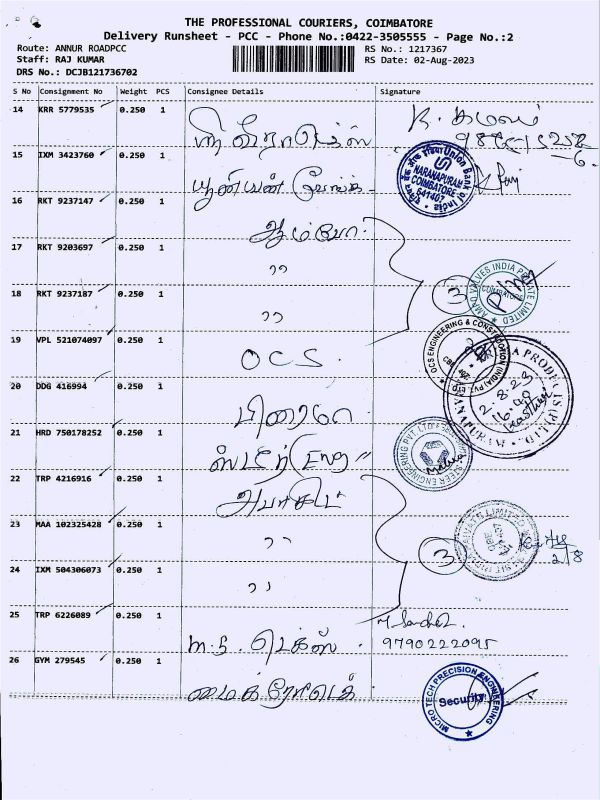 THE PROFESSIONAL COURIERS, COIMBATORE
Delivery Runsheet - PCC - Phone No.:0422-3505555 - Page No.:2
Route: ANNUR ROADPCC
RS No.: 1217367
Staff: RAJ KUMAR
RS Date: 02-Aug-2023
DRS No.: DCJB121736702
S No Consignment No Weight PCS Consignee Details Signature
14 KRR 5779535 0.250 1
15 IXM 3423760 0.250 1
Union Bank of India
NARANAPURAM
COIMBATORE
641407
யூனியன்
16 RKT 9237147 0.250 1
ஆம்போ
17 RKT 9203697 0.250 1
,,
18 RKT 9237187 0.250 1
,,
3
AMPO VALVES INDIA PRIVATE LIMITED
COIMBATORE
19 VPL 521074097 0.250 1
OCS.
OCS ENGINEERING & CONSTRUCTION (INDIA) PVT. LTD
20 DDG 416994 0.250 1
2.8.23
21 HRD 750178252 0.250 1
ஸ்டீர் Eng
STEER ENGINEERING PVT. LTD
22 TRP 4216916 0.250 1
23 MAA 102325428 0.250 1
,,
3
24 IXM 504306073 0.250 1
,,
2/8
25 TRP 6226089 0.250 1
M.S. டெக்ஸ்
9790222095
26 GYM 279545 0.250 1
மைக்ரோடெக்
MICRO TECH PRECISION ENGINEERING
Security